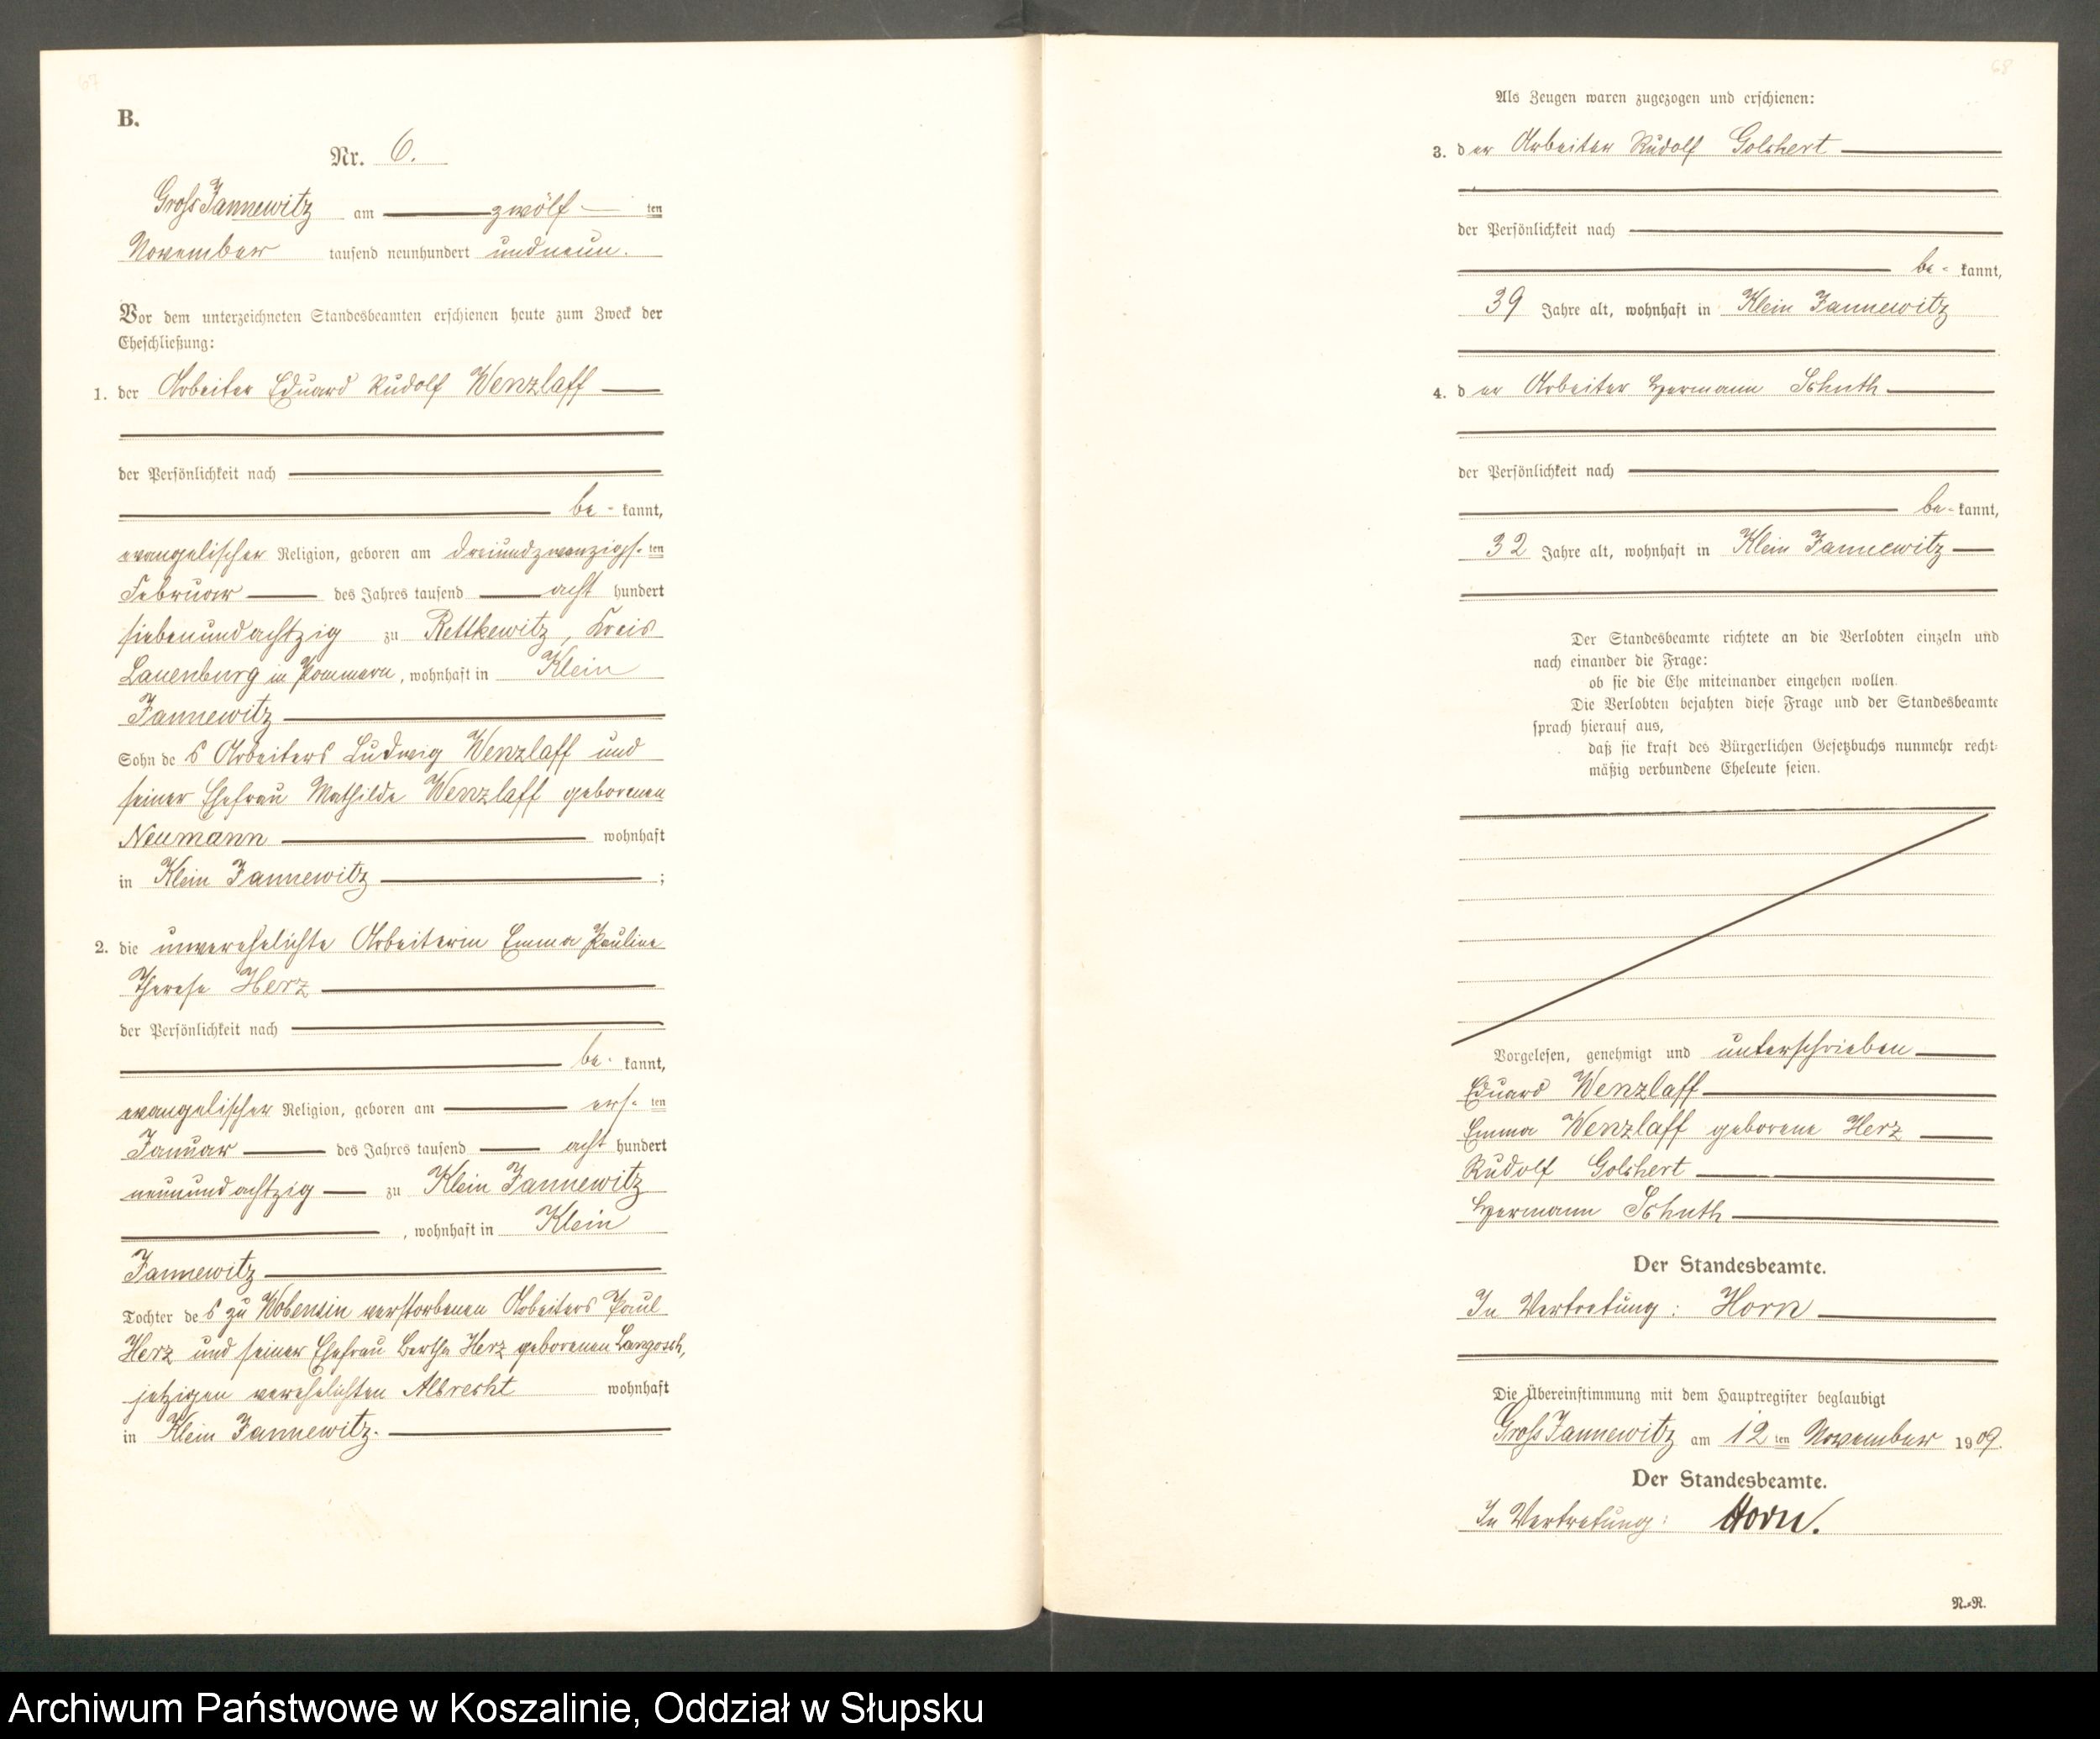 67
B.
Nr. 6.
Gross Jannewitz am zwölf ten
November tausend neunhundert und neun.
Vor dem unterzeichneten Standesbeamten erschienen heute zum Zweck der
Eheschließung:
1. der Arbeiter Eduard Rudolf Wenzlaff
der Persönlichkeit nach
be- kannt,
evangelischer Religion, geboren am dreiundzwanzigs- ten
Februar des Jahres tausend acht hundert
siebenundachtzig zu Rettkewitz, Kreis
Lauenburg in Pommern, wohnhaft in Klein
Jannewitz
Sohn des Arbeiters Ludwig Wenzlaff und
seiner Ehefrau Mathilde Wenzlaff geborenen
Neumann wohnhaft
in Klein Jannewitz ;
2. die unverehelichte Arbeiterin Emma Pauline
Therese Herz
der Persönlichkeit nach
be- kannt,
evangelischer Religion, geboren am ers- ten
Januar des Jahres tausend acht hundert
neunundachtzig zu Klein Jannewitz
, wohnhaft in Klein
Jannewitz
Tochter des zu Wobensin verstorbenen Arbeiters Paul
Herz und seiner Ehefrau Bertha Herz geborenen Langosch,
jetzigen verehelichten Albrecht wohnhaft
in Klein Jannewitz.
68
Als Zeugen waren zugezogen und erschienen:
3. der Arbeiter Rudolf Golchert
der Persönlichkeit nach
be- kannt,
39 Jahre alt, wohnhaft in Klein Jannewitz
4. der Arbeiter Hermann Schuth
der Persönlichkeit nach
be- kannt,
32 Jahre alt, wohnhaft in Klein Jannewitz
Der Standesbeamte richtete an die Verlobten einzeln und
nach einander die Frage:
ob sie die Ehe miteinander eingehen wollen.
Die Verlobten bejahten diese Frage und der Standesbeamte
sprach hierauf aus,
daß sie kraft des Bürgerlichen Gesetzbuchs nunmehr recht-
mäßig verbundene Eheleute seien.
Vorgelesen, genehmigt und unterschrieben
Eduard Wenzlaff
Emma Wenzlaff geborene Herz
Rudolf Golchert
Hermann Schuth
Der Standesbeamte.
In Vertretung: Horn
Die Übereinstimmung mit dem Hauptregister beglaubigt
Gross Jannewitz am 12 ten November 1909.
Der Standesbeamte.
In Vertretung: Horn.
N.-R.
Archiwum Państwowe w Koszalinie, Oddział w Słupsku